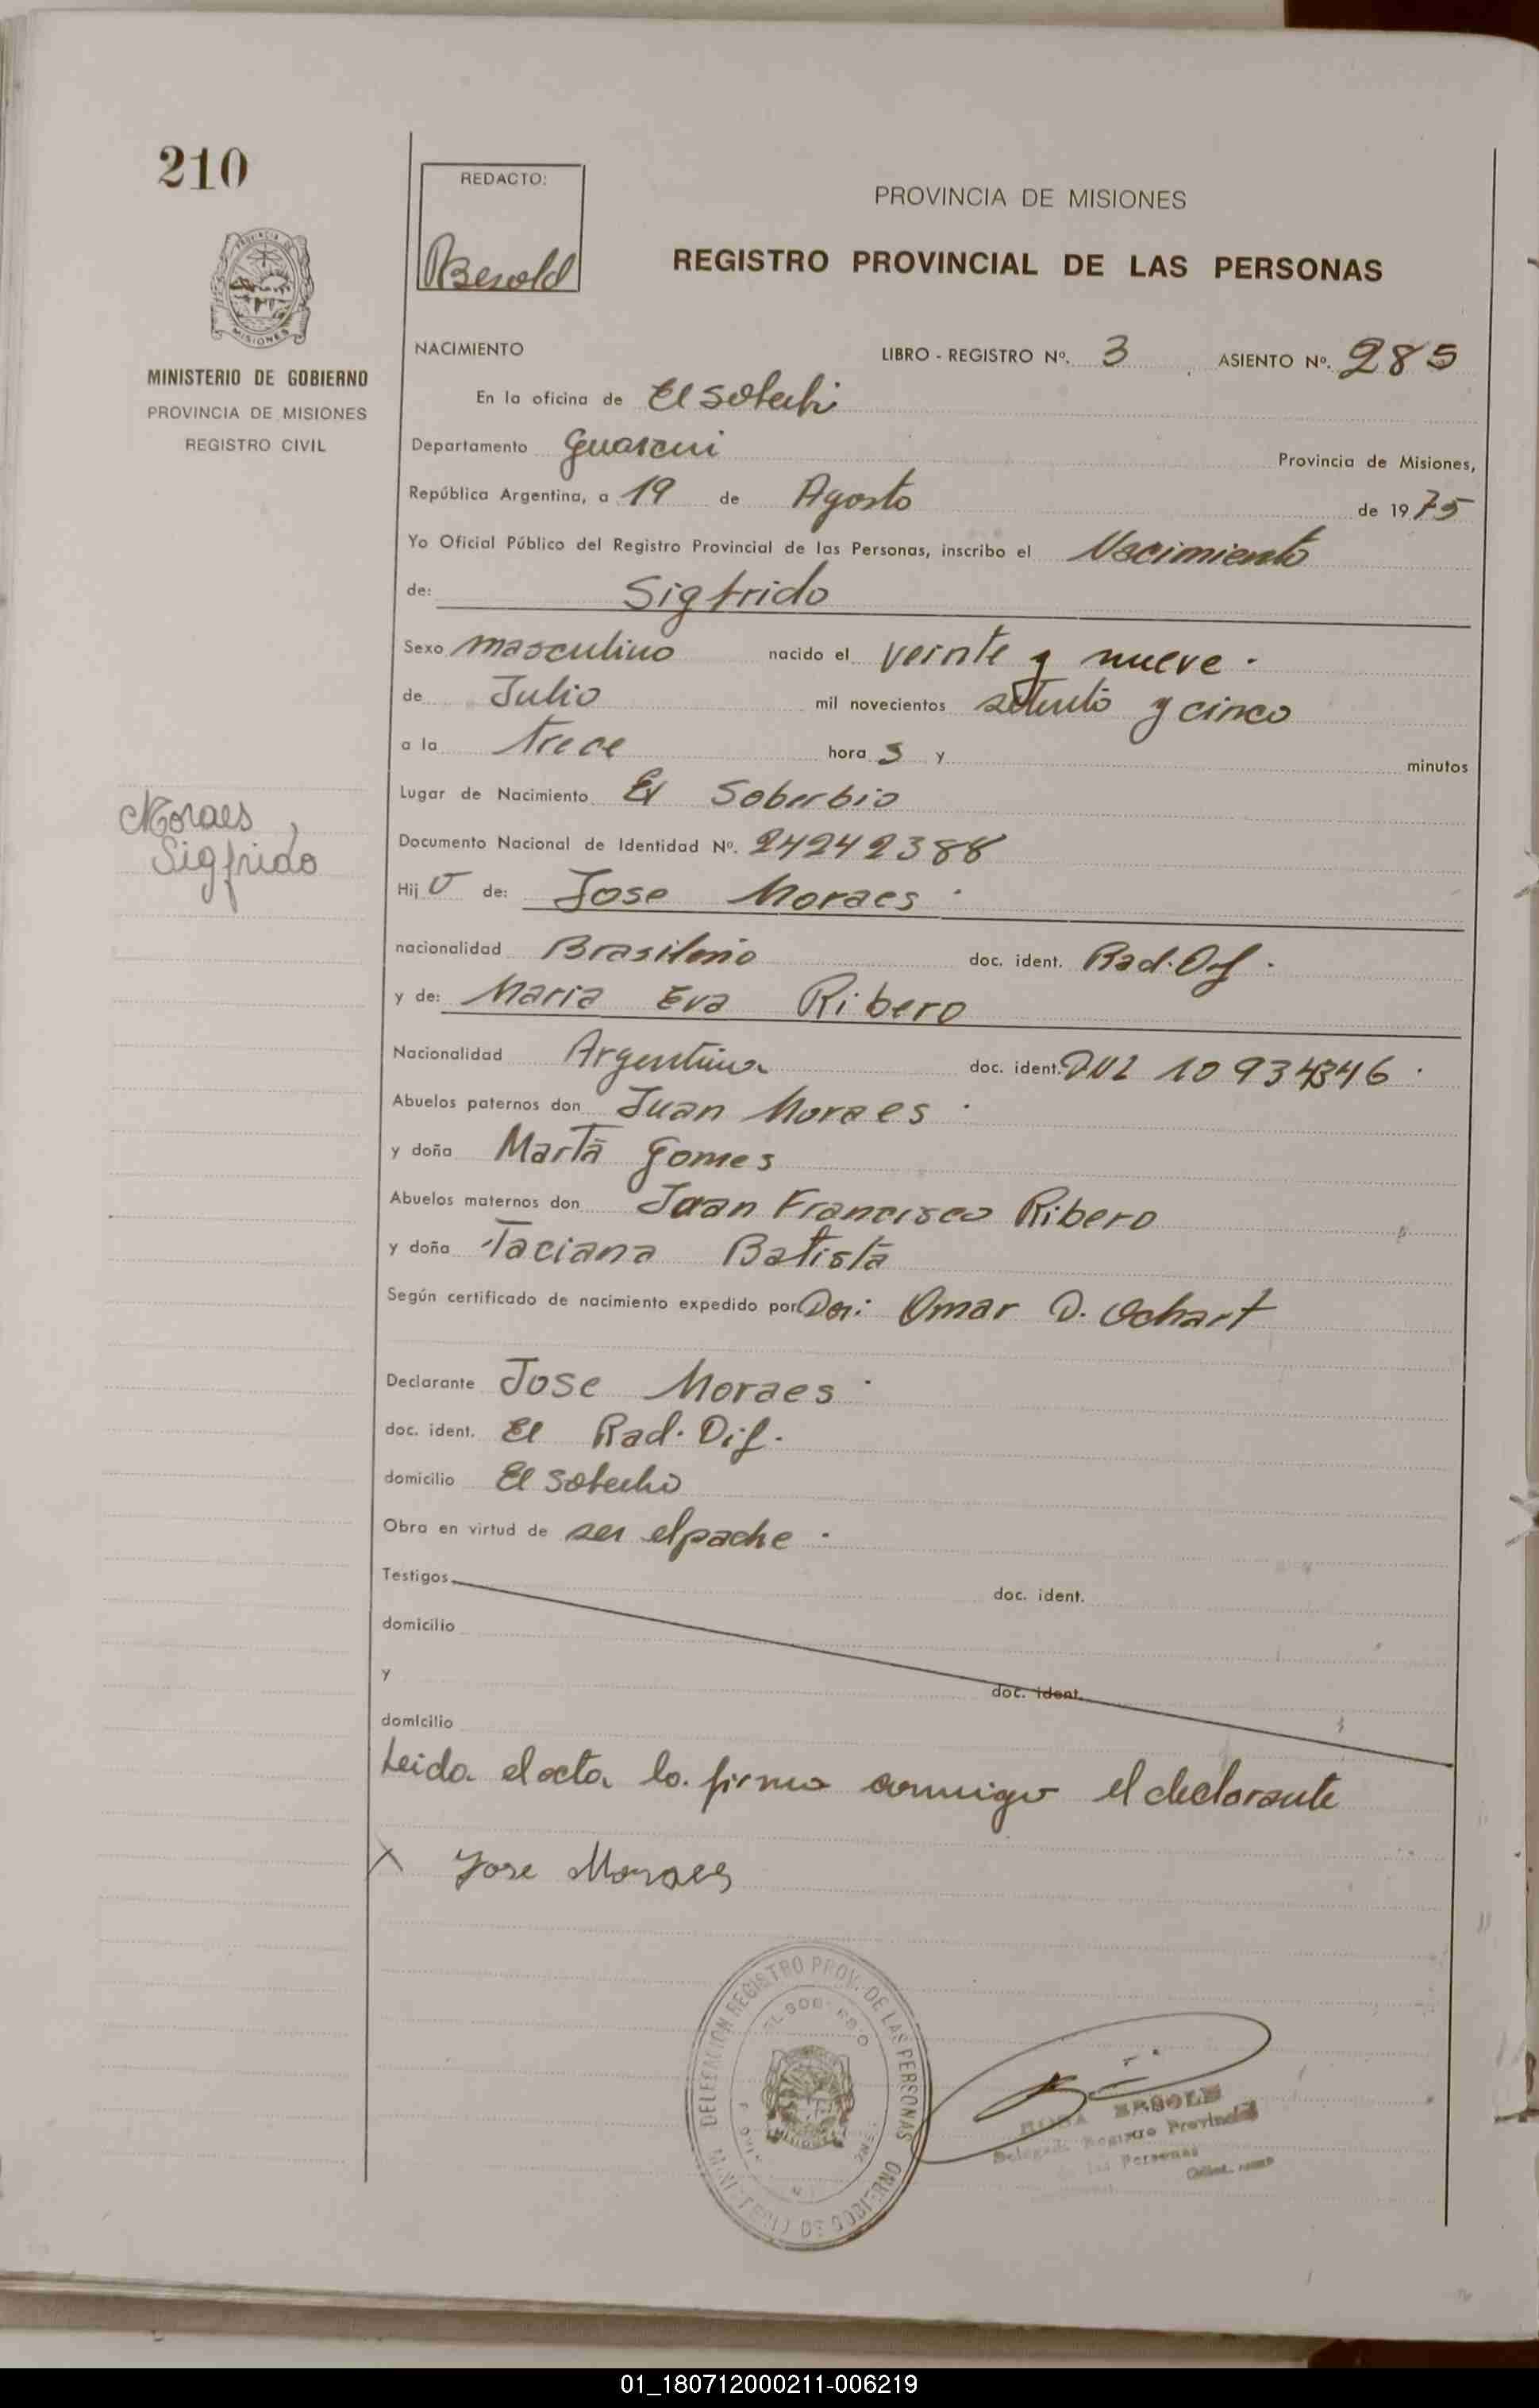 210
REDACTO:
Besold
PROVINCIA DE MISIONES
REGISTRO PROVINCIAL DE LAS PERSONAS
MISIONES
MINISTERIO DE GOBIERNO
PROVINCIA DE MISIONES
REGISTRO CIVIL
NACIMIENTO LIBRO - REGISTRO Nº. 3 ASIENTO Nº. 285
En la oficina de El Soberbio
Departamento Guarani Provincia de Misiones,
República Argentina, a 19 de Agosto de 1975
Yo Oficial Público del Registro Provincial de las Personas, inscribo el Nacimiento
de: Sigfrido
Sexo masculino nacido el veinte y nueve.
de Julio mil novecientos setenta y cinco
a la trece hora s y minutos
Lugar de Nacimiento El Soberbio
Moraes,
Sigfrido
Documento Nacional de Identidad Nº. 24242388
Hij o de: Jose Moraes.
nacionalidad Brasileño doc. ident. Rad.
y de: Maria Eva Ribero
Nacionalidad Argentina doc. ident. DNI 10934346.
Abuelos paternos don Juan Moraes.
y doña Marta Gomes
Abuelos maternos don Juan Francisco Ribero
y doña Taciana Batista
Según certificado de nacimiento expedido por Dr: Omar D. Ochart
Declarante Jose Moraes.
doc. ident. El Rad. Dif.
domicilio El Soberbio
Obra en virtud de ser el padre.
Testigos doc. ident.
domicilio
y doc. ident.
domicilio
Leida el acta la firma conmigo el declarante
X Jose Moraes
DELEGACION REGISTRO PROV. DE LAS PERSONAS
MINISTERIO DE GOBIERNO
EL SOBERBIO
ROSA BESOLD
Delegada Registro Provincial
de las Personas
01_180712000211-006219